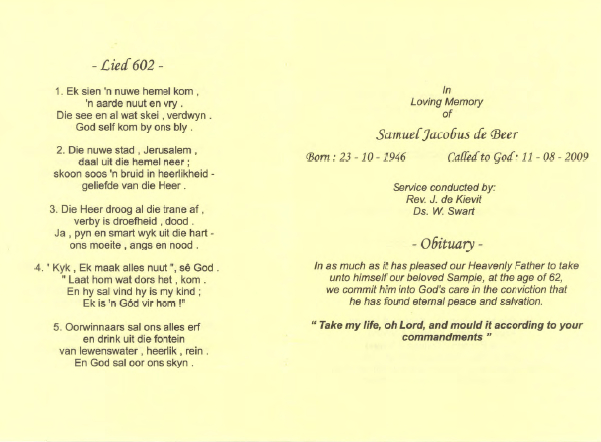 - Lied 602 -
1. Ek sien 'n nuwe hemel kom ,
'n aarde nuut en vry .
Die see en al wat skei , verdwyn .
God self kom by ons bly .
2. Die nuwe stad , Jerusalem ,
daal uit die hemel neer ;
skoon soos 'n bruid in heerlikheid -
geliefde van die Heer .
3. Die Heer droog al die trane af ,
verby is droefheid , dood .
Ja , pyn en smart wyk uit die hart -
ons moeite , angs en nood .
4. " Kyk , Ek maak alles nuut ", sê God .
" Laat hom wat dors het , kom .
En hy sal vind hy is my kind ;
Ek is 'n Gód vir hom !"
5. Oorwinnaars sal ons alles erf
en drink uit die fontein
van lewenswater , heerlik , rein .
En God sal oor ons skyn .
In
Loving Memory
of
Samuel Jacobus de Beer
Born : 23 - 10 - 1946 Called to God : 11 - 08 - 2009
Service conducted by:
Rev. J. de Kievit
Ds. W. Swart
- Obituary -
In as much as it has pleased our Heavenly Father to take
unto himself our beloved Sampie, at the age of 62,
we commit him into God's care in the conviction that
he has found eternal peace and salvation.
" Take my life, oh Lord, and mould it according to your
commandments "